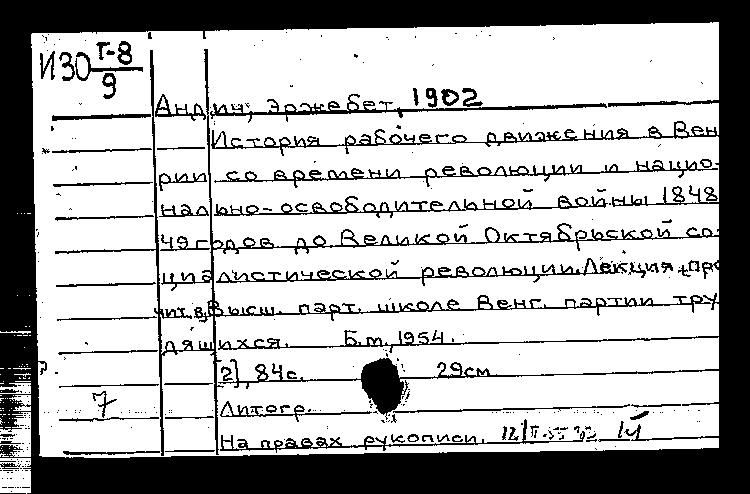 ИЗО Т-8
9
Андин, Эржебет, 1902
История рабочего движения в Вен
рии со времени революции и нацио-
нально-освободительной войны 1848
49 годов до Великой Октябрьской со
циалистической революции. Лекция, про
чит. в Высш. парт. школе Венг. партии тру
дящихся. Б.м., 1954.
[2], 84с. 29см
7 Литогр.
На правах рукописи.